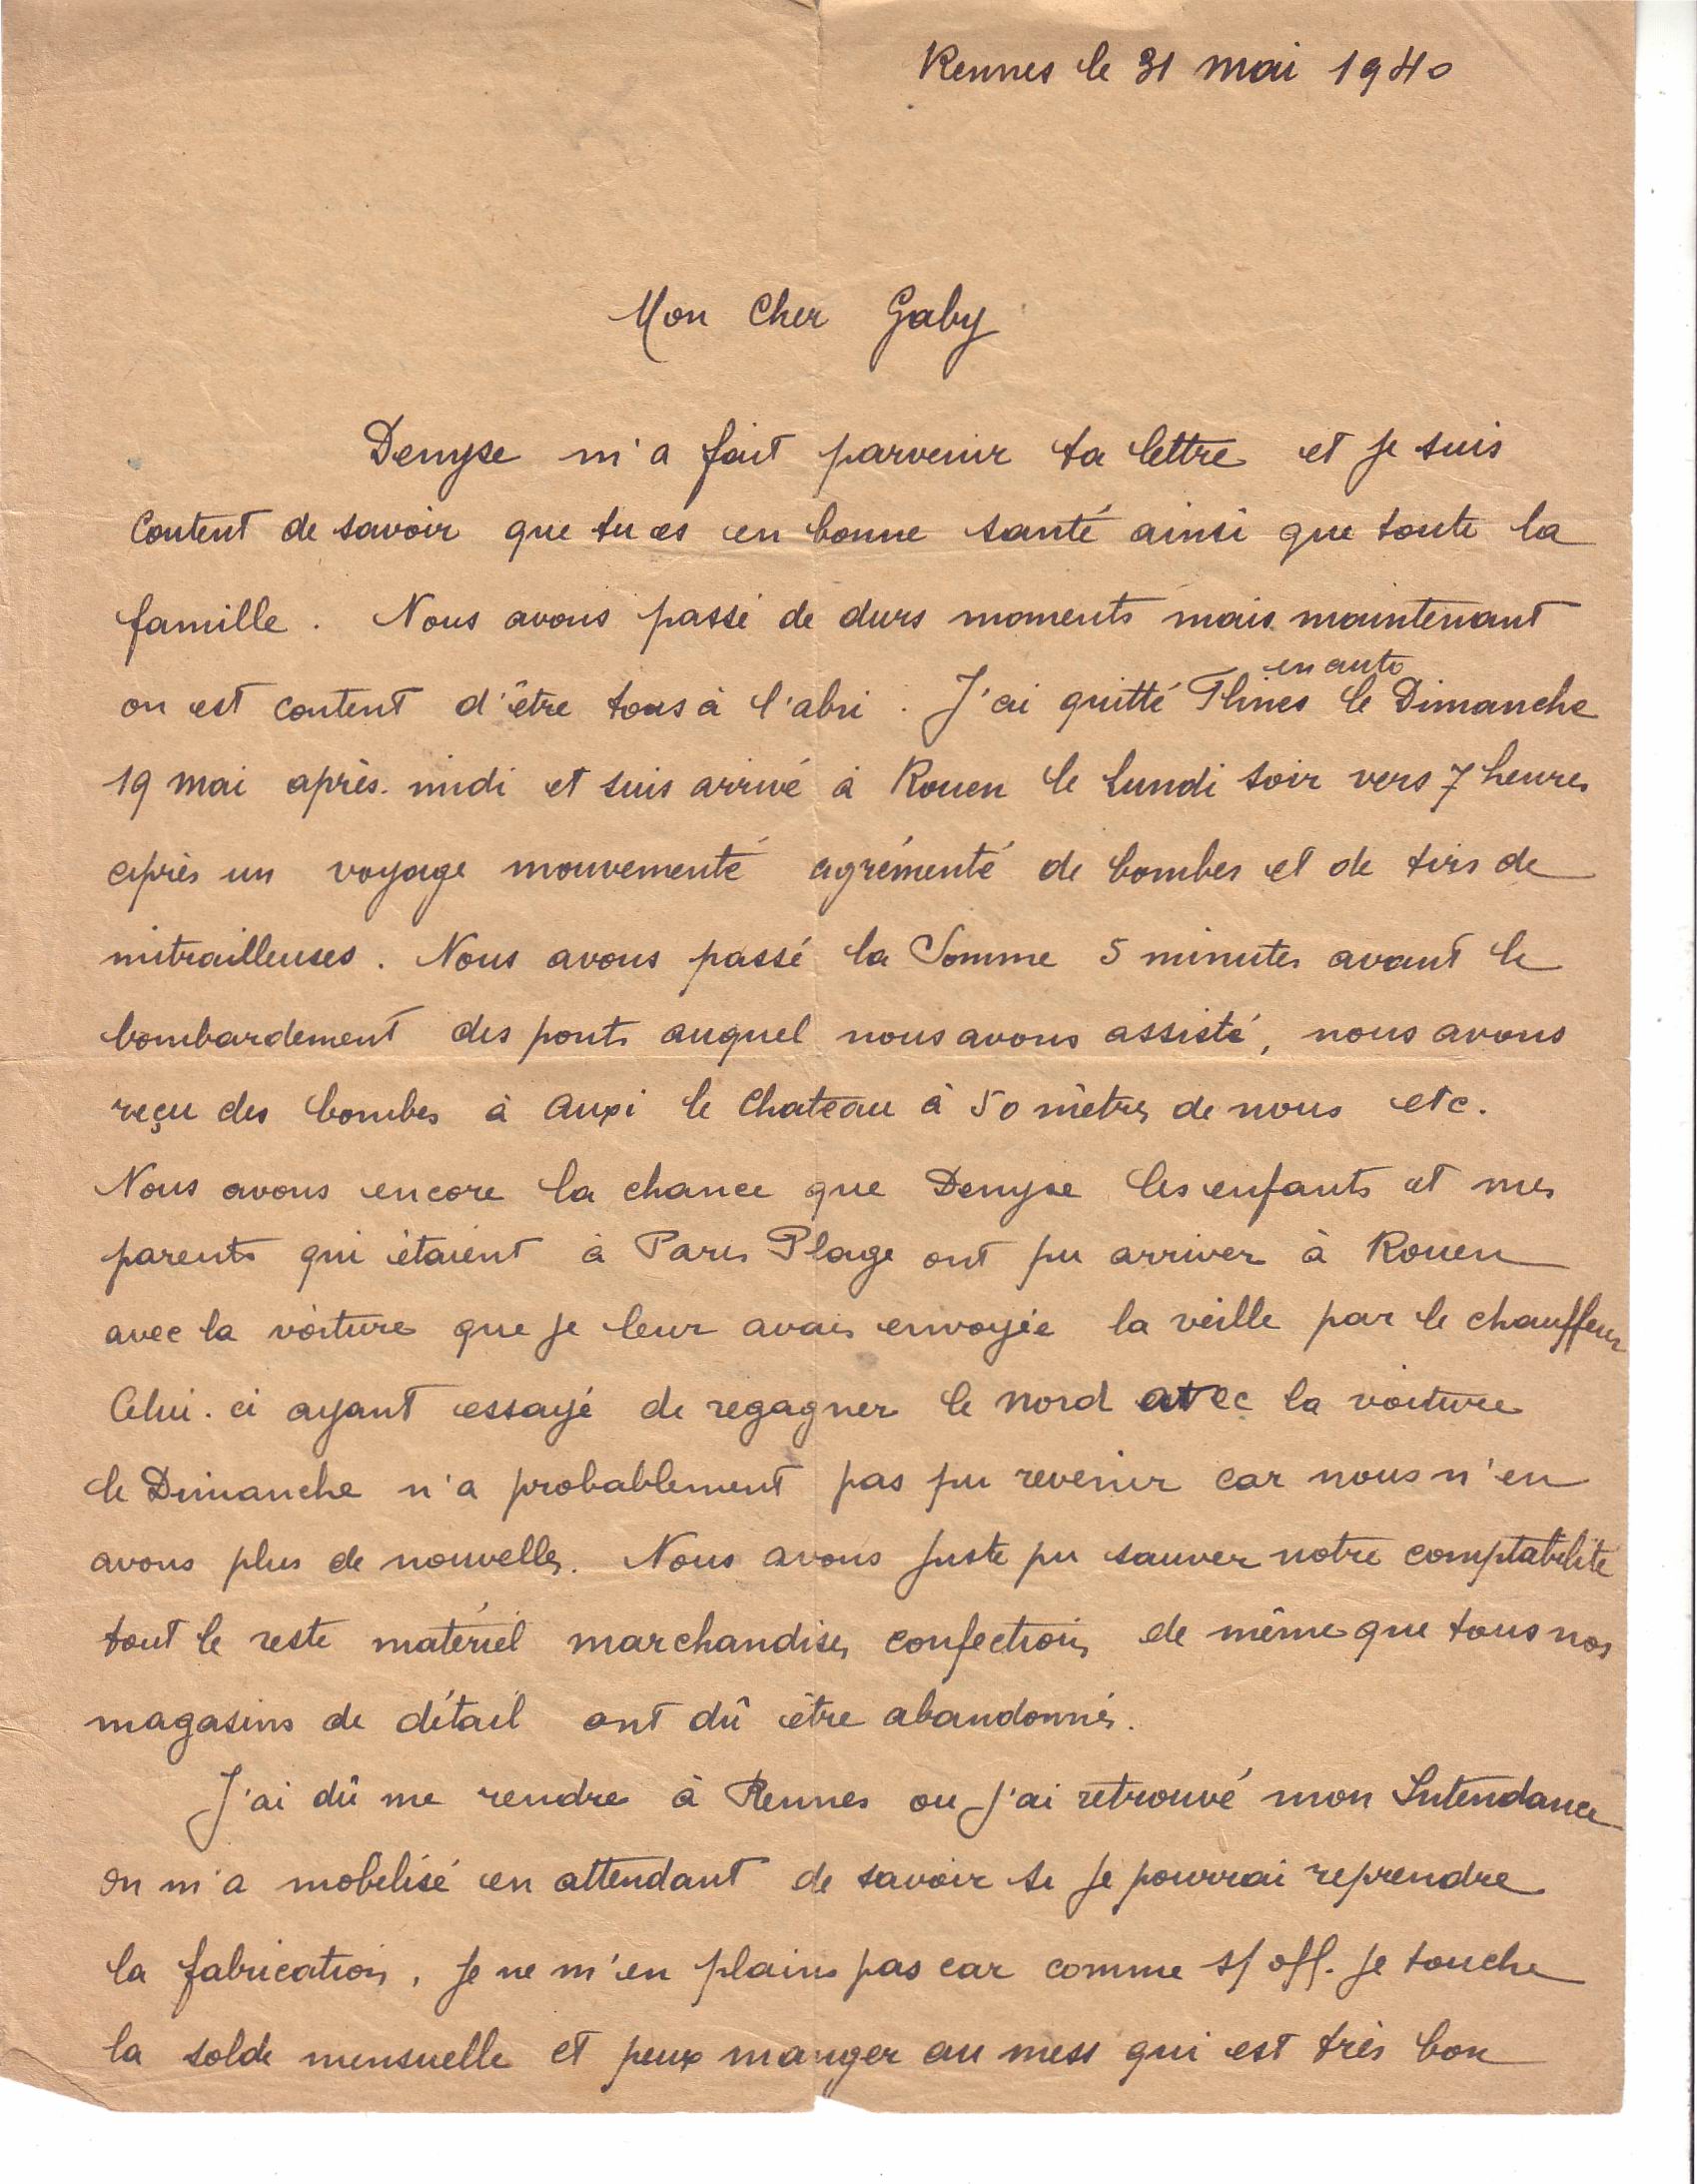 Rennes le 31 mai 1940
Mon Cher Gaby
Denyse m'a fait parvenir ta lettre et je suis
content de savoir que tu es en bonne santé ainsi que toute la
famille. Nous avons passé de durs moments mais maintenant
en auto
on est content d'être tous à l'abri. J'ai quitté Flines le Dimanche
19 mai après-midi et suis arrivé à Rouen le Lundi soir vers 7 heures
après un voyage mouvementé agrémenté de bombes et de tirs de
mitrailleuses. Nous avons passé la Somme 5 minutes avant le
bombardement des ponts auquel nous avons assisté, nous avons
reçu des bombes à Auxi le Chateau à 50 mètres de nous etc.
Nous avons encore la chance que Denyse les enfants et mes
parents qui étaient à Paris Plage ont pu arriver à Rouen
avec la voiture que je leur avais envoyée la veille par le chauffeur
Celui-ci ayant essayé de regagner le nord avec la voiture
le Dimanche n'a probablement pas pu revenir car nous n'en
avons plus de nouvelles. Nous avons juste pu sauver notre comptabilité
tout le reste matériel marchandises confections de même que tous nos
magasins de détail ont dû être abandonnés.
J'ai dû me rendre à Rennes ou j'ai retrouvé mon Intendance
on m'a mobilisé en attendant de savoir si je pourrai reprendre
la fabrication, je ne m'en plains pas car comme s/off. je touche
la solde mensuelle et peux manger au mess qui est très bon